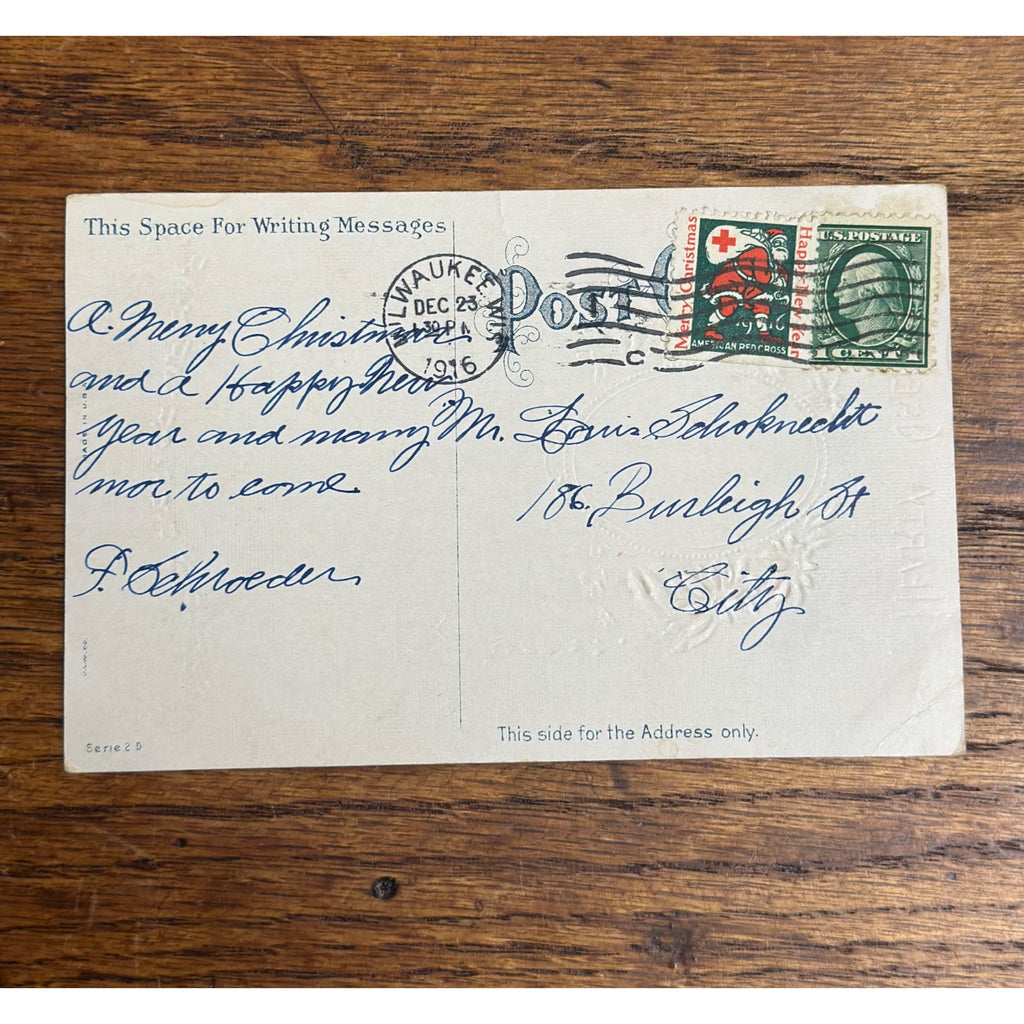 This Space For Writing Messages
MILWAUKEE WIS.
DEC 23
30 P M
1916
POST
C
Merry Christmas
Happy New Year
1916
AMERICAN RED CROSS
U.S. POSTAGE
1 CENT 1
A. Merry Christmas
and a Happy New
Year and many
mor to come
F. Schroeder
Mr. Louis Schoknecht
186. Burleigh St
City
MADE IN U.S.
U.S.W. CO.
Serie 2 D
This side for the Address only.